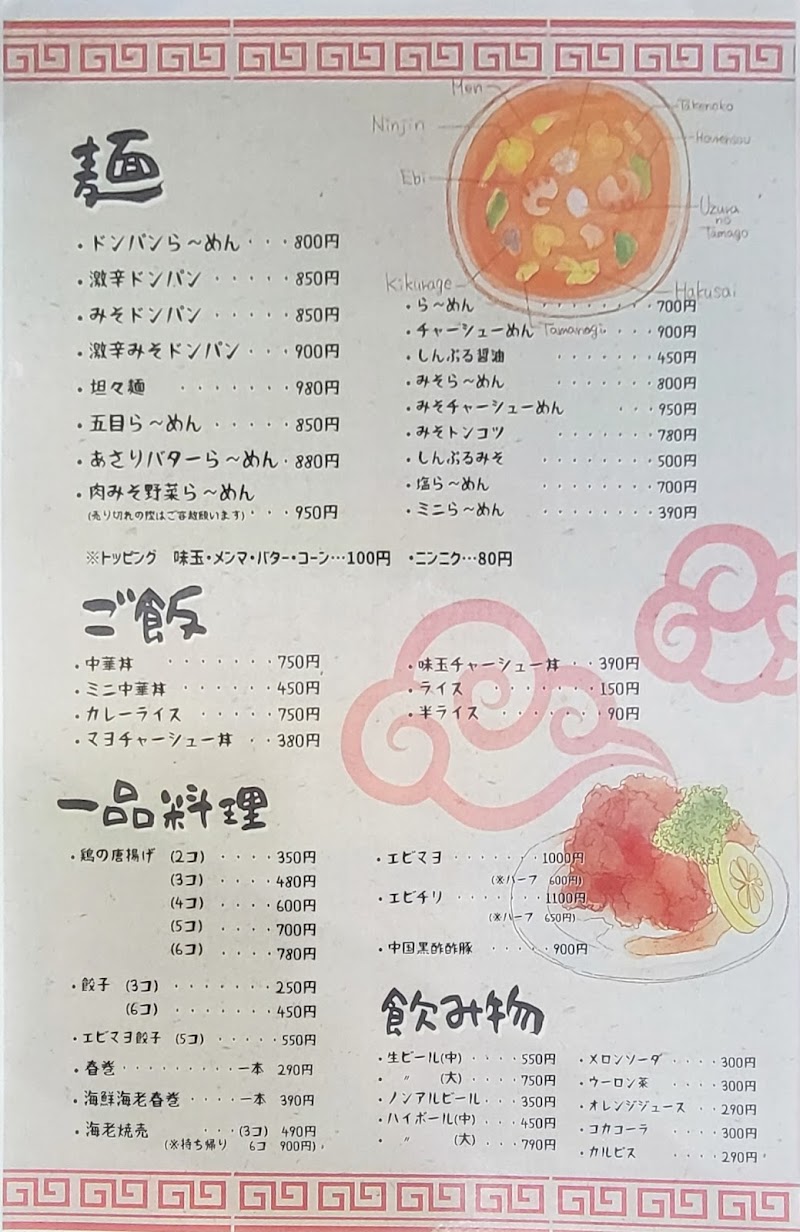 Men
Ninjin
Ebi
Kikurage
Takenoko
Hourensou
Uzura
no
Tamago
Hakusai
Tamanegi
麺
・ドンパンら～めん・・・800円
・激辛ドンパン・・・・・850円
・みそドンパン・・・・・850円
・激辛みそドンパン・・・900円
・坦々麺・・・・・・980円
・五目ら～めん・・・・・850円
・あさりバターら～めん・880円
・肉みそ野菜ら～めん
(売り切れの際はご容赦願います)・・・950円
・ら～めん・・・・・・・700円
・チャーシューめん・・・900円
・しんぷる醤油・・・・・・・450円
・みそら～めん・・・・・・・800円
・みそチャーシューめん・・・950円
・みそトンコツ・・・・・・・780円
・しんぷるみそ・・・・・・・500円
・塩ら～めん・・・・・・・700円
・ミニら～めん・・・・・・・390円
※トッピング 味玉・メンマ・バター・コーン…100円 ・ニンニク…80円
ご飯
・中華丼・・・・・・・750円
・ミニ中華丼・・・・・450円
・カレーライス・・・・・750円
・マヨチャーシュー丼・・380円
・味玉チャーシュー丼・・390円
・ライス・・・・・・・150円
・半ライス・・・・・・90円
一品料理
・鶏の唐揚げ (2コ)・・・・350円
(3コ)・・・・480円
(4コ)・・・・600円
(5コ)・・・・700円
(6コ)・・・・780円
・餃子 (3コ)・・・・・・・250円
(6コ)・・・・・・・450円
・エビマヨ餃子 (5コ)・・・・・550円
・春巻・・・・・・・・・一本 290円
・海鮮海老春巻・・・・一本 390円
・海老焼売・・・(3コ) 490円
(※持ち帰り 6コ 900円)
・エビマヨ・・・・・・・1000円
(※ハーフ 600円)
・エビチリ・・・・・・・1100円
(※ハーフ 650円)
・中国黒酢酢豚・・・・・900円
飲み物
・生ビール(中)・・・・550円
・〃 (大)・・・・750円
・ノンアルビール・・・350円
・ハイボール(中)・・・450円
・〃 (大)・・・790円
・メロンソーダ・・・・300円
・ウーロン茶・・・・300円
・オレンジジュース・・・290円
・コカコーラ・・・・300円
・カルピス・・・・290円